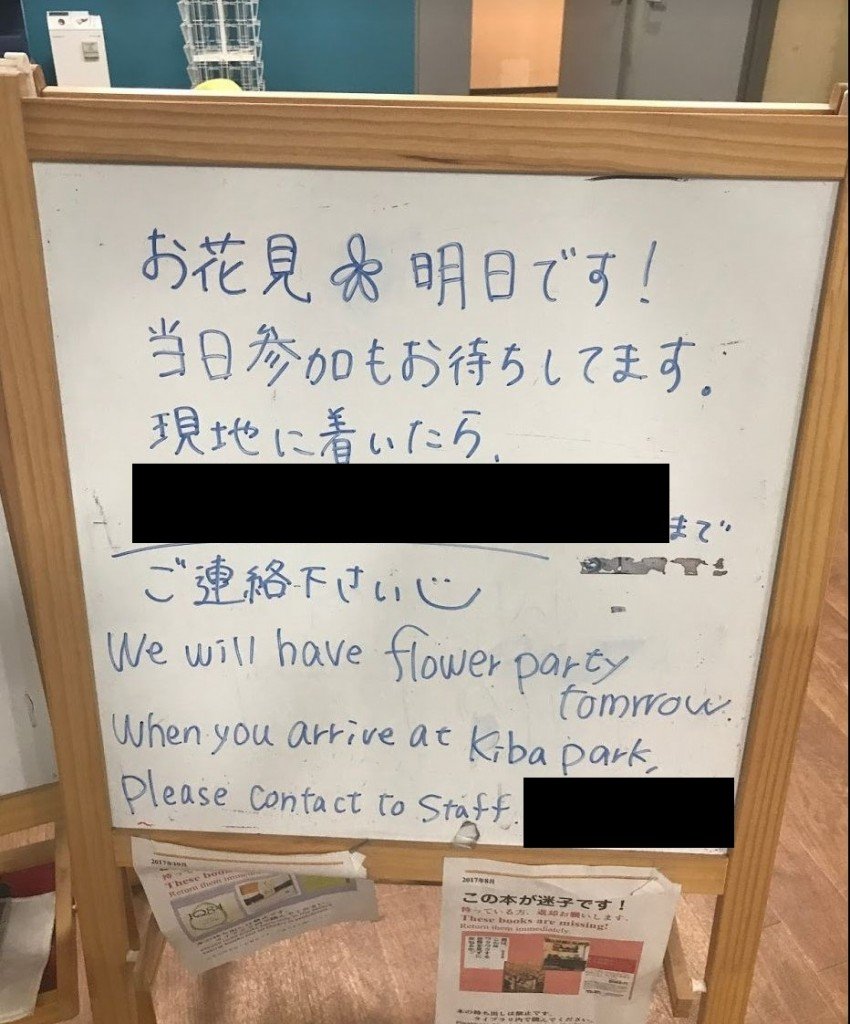 お花見 明日です!
当日参加もお待ちしてます.
現地に着いたら,
まで
ご連絡下さい
We will have flower party
tomrrow.
When you arrive at Kiba park,
Please contact to Staff.
2017年10月
These books
Return them immediately
2017年8月
この本が迷子です!
持っている方、返却お願いします。
These books are missing!
Return them immediately.
本の持ち出しは禁止です。
ライブラリ内で読んでください。